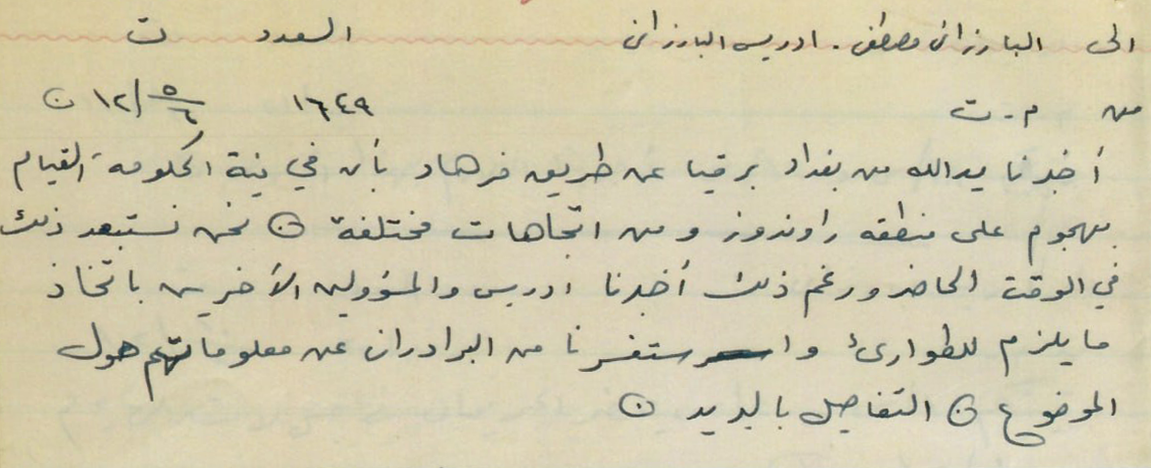 الى البارزانى مصطفى . ادريس البارزانى العدد ت
من م . ت ١٦٤٩ ٥/٦ /١٢ ن
أخبرنا يدالله من بغداد برقيا عن طريق فرهاد بأن في نية الحكومة القيام
بهجوم على منطقه راوندوز ومن اتجاهات مختلفة ن نحن نستبعد ذلك
في الوقت الحاضر ورغم ذلك أخبرنا ادريس والمسؤولين الآخرين باتخاذ
ما يلزم للطوارئ واستفسرنا من البرادران عن معلوماتهم حول
الموضوع ن التفاصيل بالبريد ن